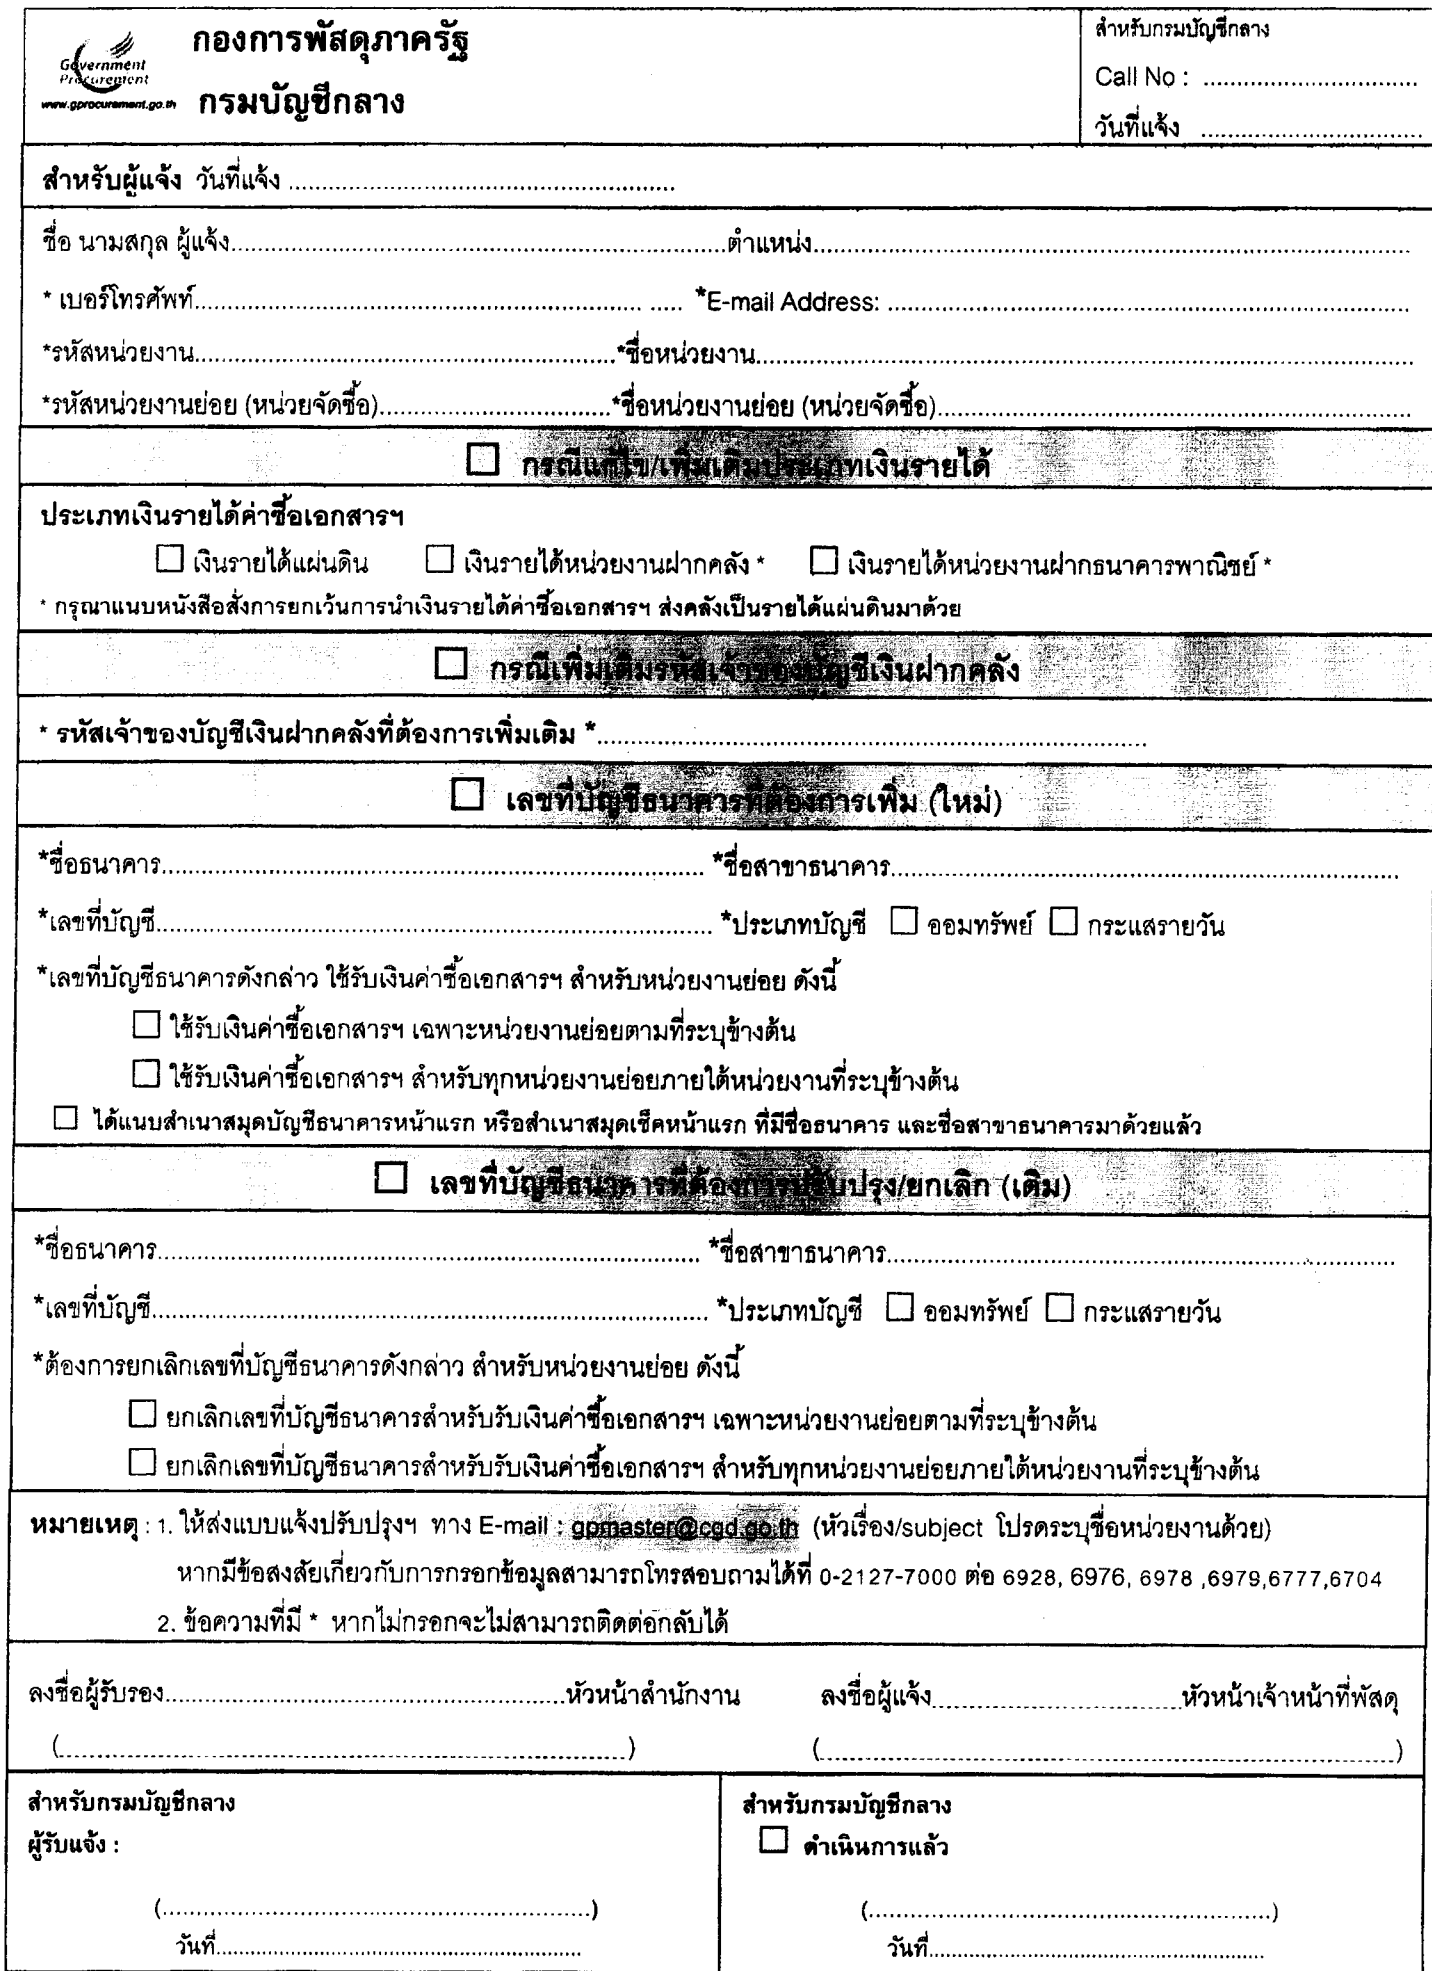 Government
Procurement
www.gprocurement.go.th
กองการพัสดุภาครัฐ
กรมบัญชีกลาง
สำหรับกรมบัญชีกลาง
Call No : ........................................
วันที่แจ้ง ........................................
สำหรับผู้แจ้ง วันที่แจ้ง ........................................
ชื่อ นามสกุล ผู้แจ้ง........................................ตำแหน่ง........................................
* เบอร์โทรศัพท์........................................ ..... *E-mail Address: ........................................
*รหัสหน่วยงาน........................................*ชื่อหน่วยงาน........................................
*รหัสหน่วยงานย่อย (หน่วยจัดซื้อ)........................................*ชื่อหน่วยงานย่อย (หน่วยจัดซื้อ)........................................
☐ กรณีแก้ไข/เพิ่มเติมประเภทเงินรายได้
ประเภทเงินรายได้ค่าซื้อเอกสารฯ
☐ เงินรายได้แผ่นดิน ☐ เงินรายได้หน่วยงานฝากคลัง * ☐ เงินรายได้หน่วยงานฝากธนาคารพาณิชย์ *
* กรุณาแนบหนังสือสั่งการยกเว้นการนำเงินรายได้ค่าซื้อเอกสารฯ ส่งคลังเป็นรายได้แผ่นดินมาด้วย
☐ กรณีเพิ่มเติมรหัสเจ้าของบัญชีเงินฝากคลัง
* รหัสเจ้าของบัญชีเงินฝากคลังที่ต้องการเพิ่มเติม *........................................
☐ เลขที่บัญชีธนาคารที่ต้องการเพิ่ม (ใหม่)
*ชื่อธนาคาร........................................ *ชื่อสาขาธนาคาร........................................
*เลขที่บัญชี........................................ *ประเภทบัญชี ☐ ออมทรัพย์ ☐ กระแสรายวัน
*เลขที่บัญชีธนาคารดังกล่าว ใช้รับเงินค่าซื้อเอกสารฯ สำหรับหน่วยงานย่อย ดังนี้
☐ ใช้รับเงินค่าซื้อเอกสารฯ เฉพาะหน่วยงานย่อยตามที่ระบุข้างต้น
☐ ใช้รับเงินค่าซื้อเอกสารฯ สำหรับทุกหน่วยงานย่อยภายใต้หน่วยงานที่ระบุข้างต้น
☐ ได้แนบสำเนาสมุดบัญชีธนาคารหน้าแรก หรือสำเนาสมุดเช็คหน้าแรก ที่มีชื่อธนาคาร และชื่อสาขาธนาคารมาด้วยแล้ว
☐ เลขที่บัญชีธนาคารที่ต้องการปรับปรุง/ยกเลิก (เดิม)
*ชื่อธนาคาร........................................ *ชื่อสาขาธนาคาร........................................
*เลขที่บัญชี........................................ *ประเภทบัญชี ☐ ออมทรัพย์ ☐ กระแสรายวัน
*ต้องการยกเลิกเลขที่บัญชีธนาคารดังกล่าว สำหรับหน่วยงานย่อย ดังนี้
☐ ยกเลิกเลขที่บัญชีธนาคารสำหรับรับเงินค่าซื้อเอกสารฯ เฉพาะหน่วยงานย่อยตามที่ระบุข้างต้น
☐ ยกเลิกเลขที่บัญชีธนาคารสำหรับรับเงินค่าซื้อเอกสารฯ สำหรับทุกหน่วยงานย่อยภายใต้หน่วยงานที่ระบุข้างต้น
หมายเหตุ : 1. ให้ส่งแบบแจ้งปรับปรุงฯ ทาง E-mail : gpmaster@cgd.go.th (หัวเรื่อง/subject โปรดระบุชื่อหน่วยงานด้วย)
หากมีข้อสงสัยเกี่ยวกับการกรอกข้อมูลสามารถโทรสอบถามได้ที่ 0-2127-7000 ต่อ 6928, 6976, 6978 ,6979,6777,6704
2. ข้อความที่มี * หากไม่กรอกจะไม่สามารถติดต่อกลับได้
ลงชื่อผู้รับรอง........................................หัวหน้าสำนักงาน ลงชื่อผู้แจ้ง........................................หัวหน้าเจ้าหน้าที่พัสดุ
(........................................) (........................................)
สำหรับกรมบัญชีกลาง
ผู้รับแจ้ง :
(........................................)
วันที่........................................
สำหรับกรมบัญชีกลาง
☐ ดำเนินการแล้ว
(........................................)
วันที่........................................